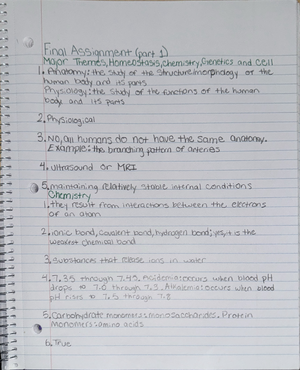 Final Assignment (part 1)
Major Themes, Homeostasis, Chemistry, Genetics and Cell
1. Anatomy: the study of the structure/morphology of the
human body and its parts
Physiology: the study of the functions of the human
body and its parts
2. Physiological
3. No, all humans do not have the same anatomy.
Example: the branching pattern of arteries
4. ultrasound or MRI
5. maintaining relatively stable internal conditions
Chemistry
1. they result from interactions between the electrons
of an atom
2. ionic bond, covalent bond, hydrogen bond; yes, it is the
weakest chemical bond
3. Substances that release ions in water
4. 7.35 through 7.45. Acidemia: occurs when blood pH
drops to 7.0 through 7.3. Alkalemia: occurs when blood
pH rises to 7.5 through 7.8
5. Carbohydrate monomers: monosaccharides. Protein
monomers: amino acids
6. True